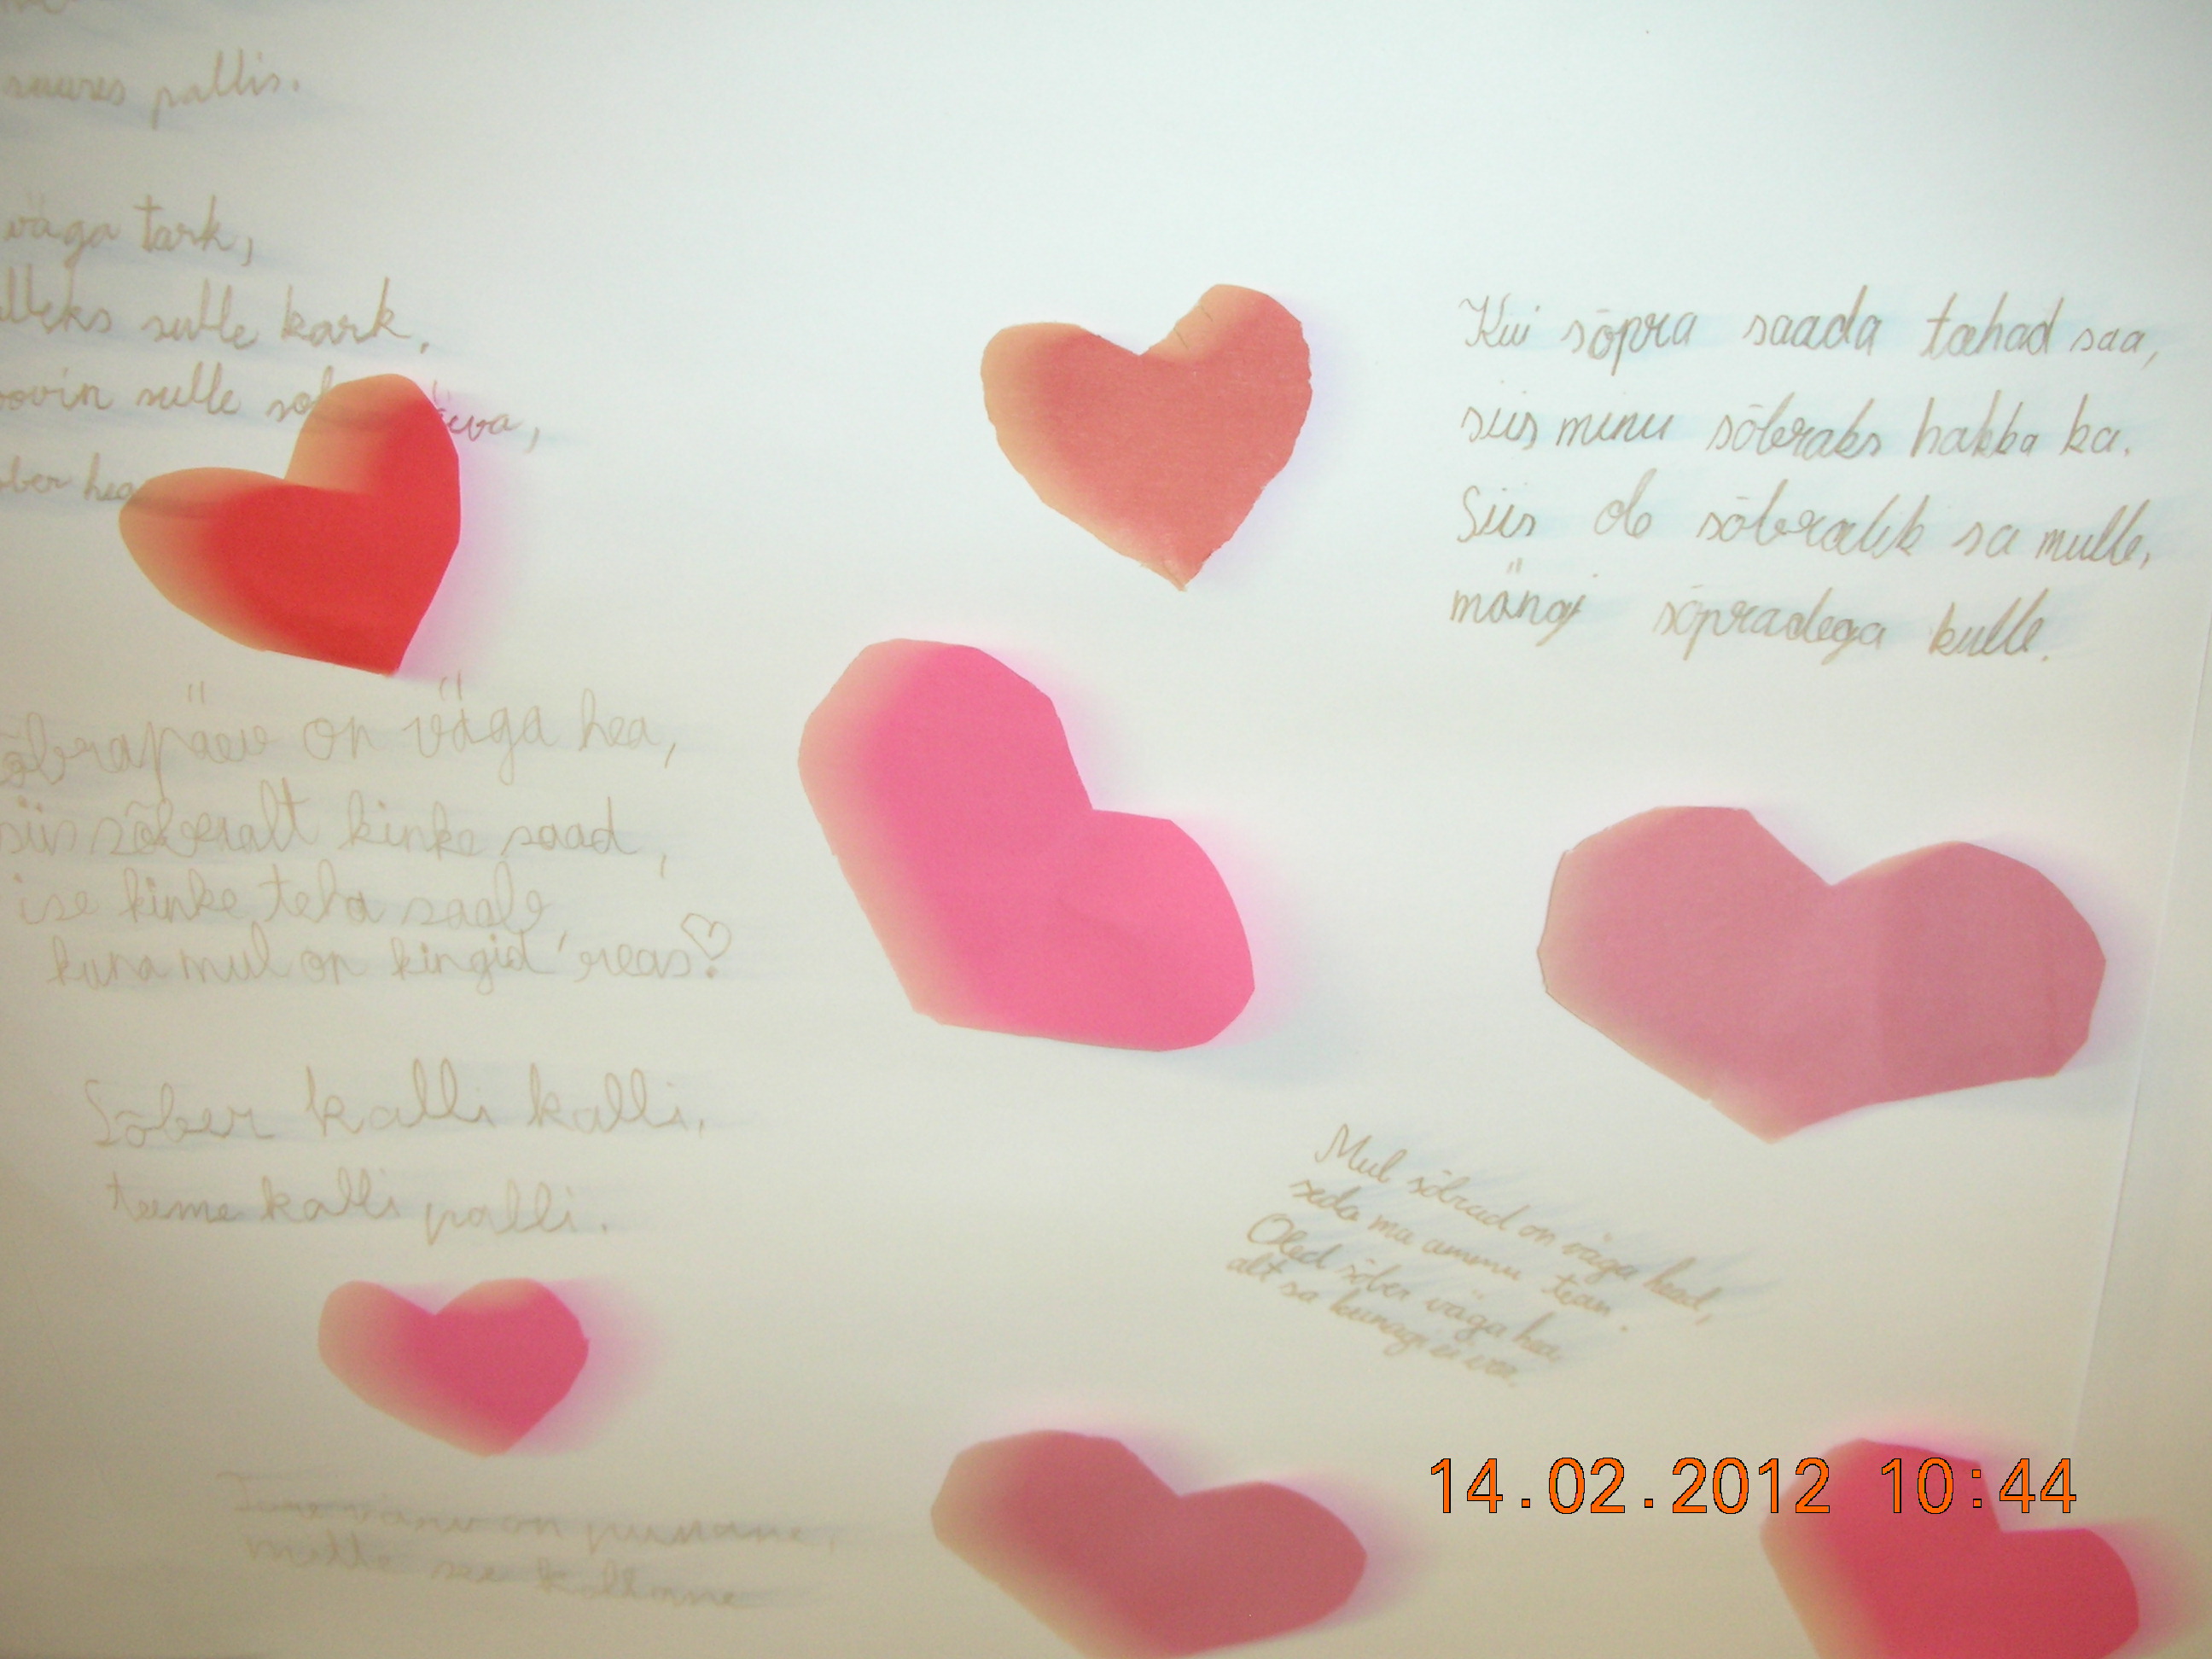 suures pallis.
väga tark,
sulle kark,
soovin sulle
hea
sõbrapäev on väga hea,
siis sõbralt kinke saad,
ise kinke teha
kuna mul on kingid reas!
Sõber kalli kalli,
teeme kalli palli.
on punane,
Kui sõpra saada tahad saa,
siis minu sõbraks hakka ka.
Siis ole sõbralik sa mulle,
mängi sõpradega kulle.
Mul sõbrad on väga head,
seda ma ammu tean.
Oled sõber väga hea,
alt sa kunagi ei vea.
14.02.2012 10:44